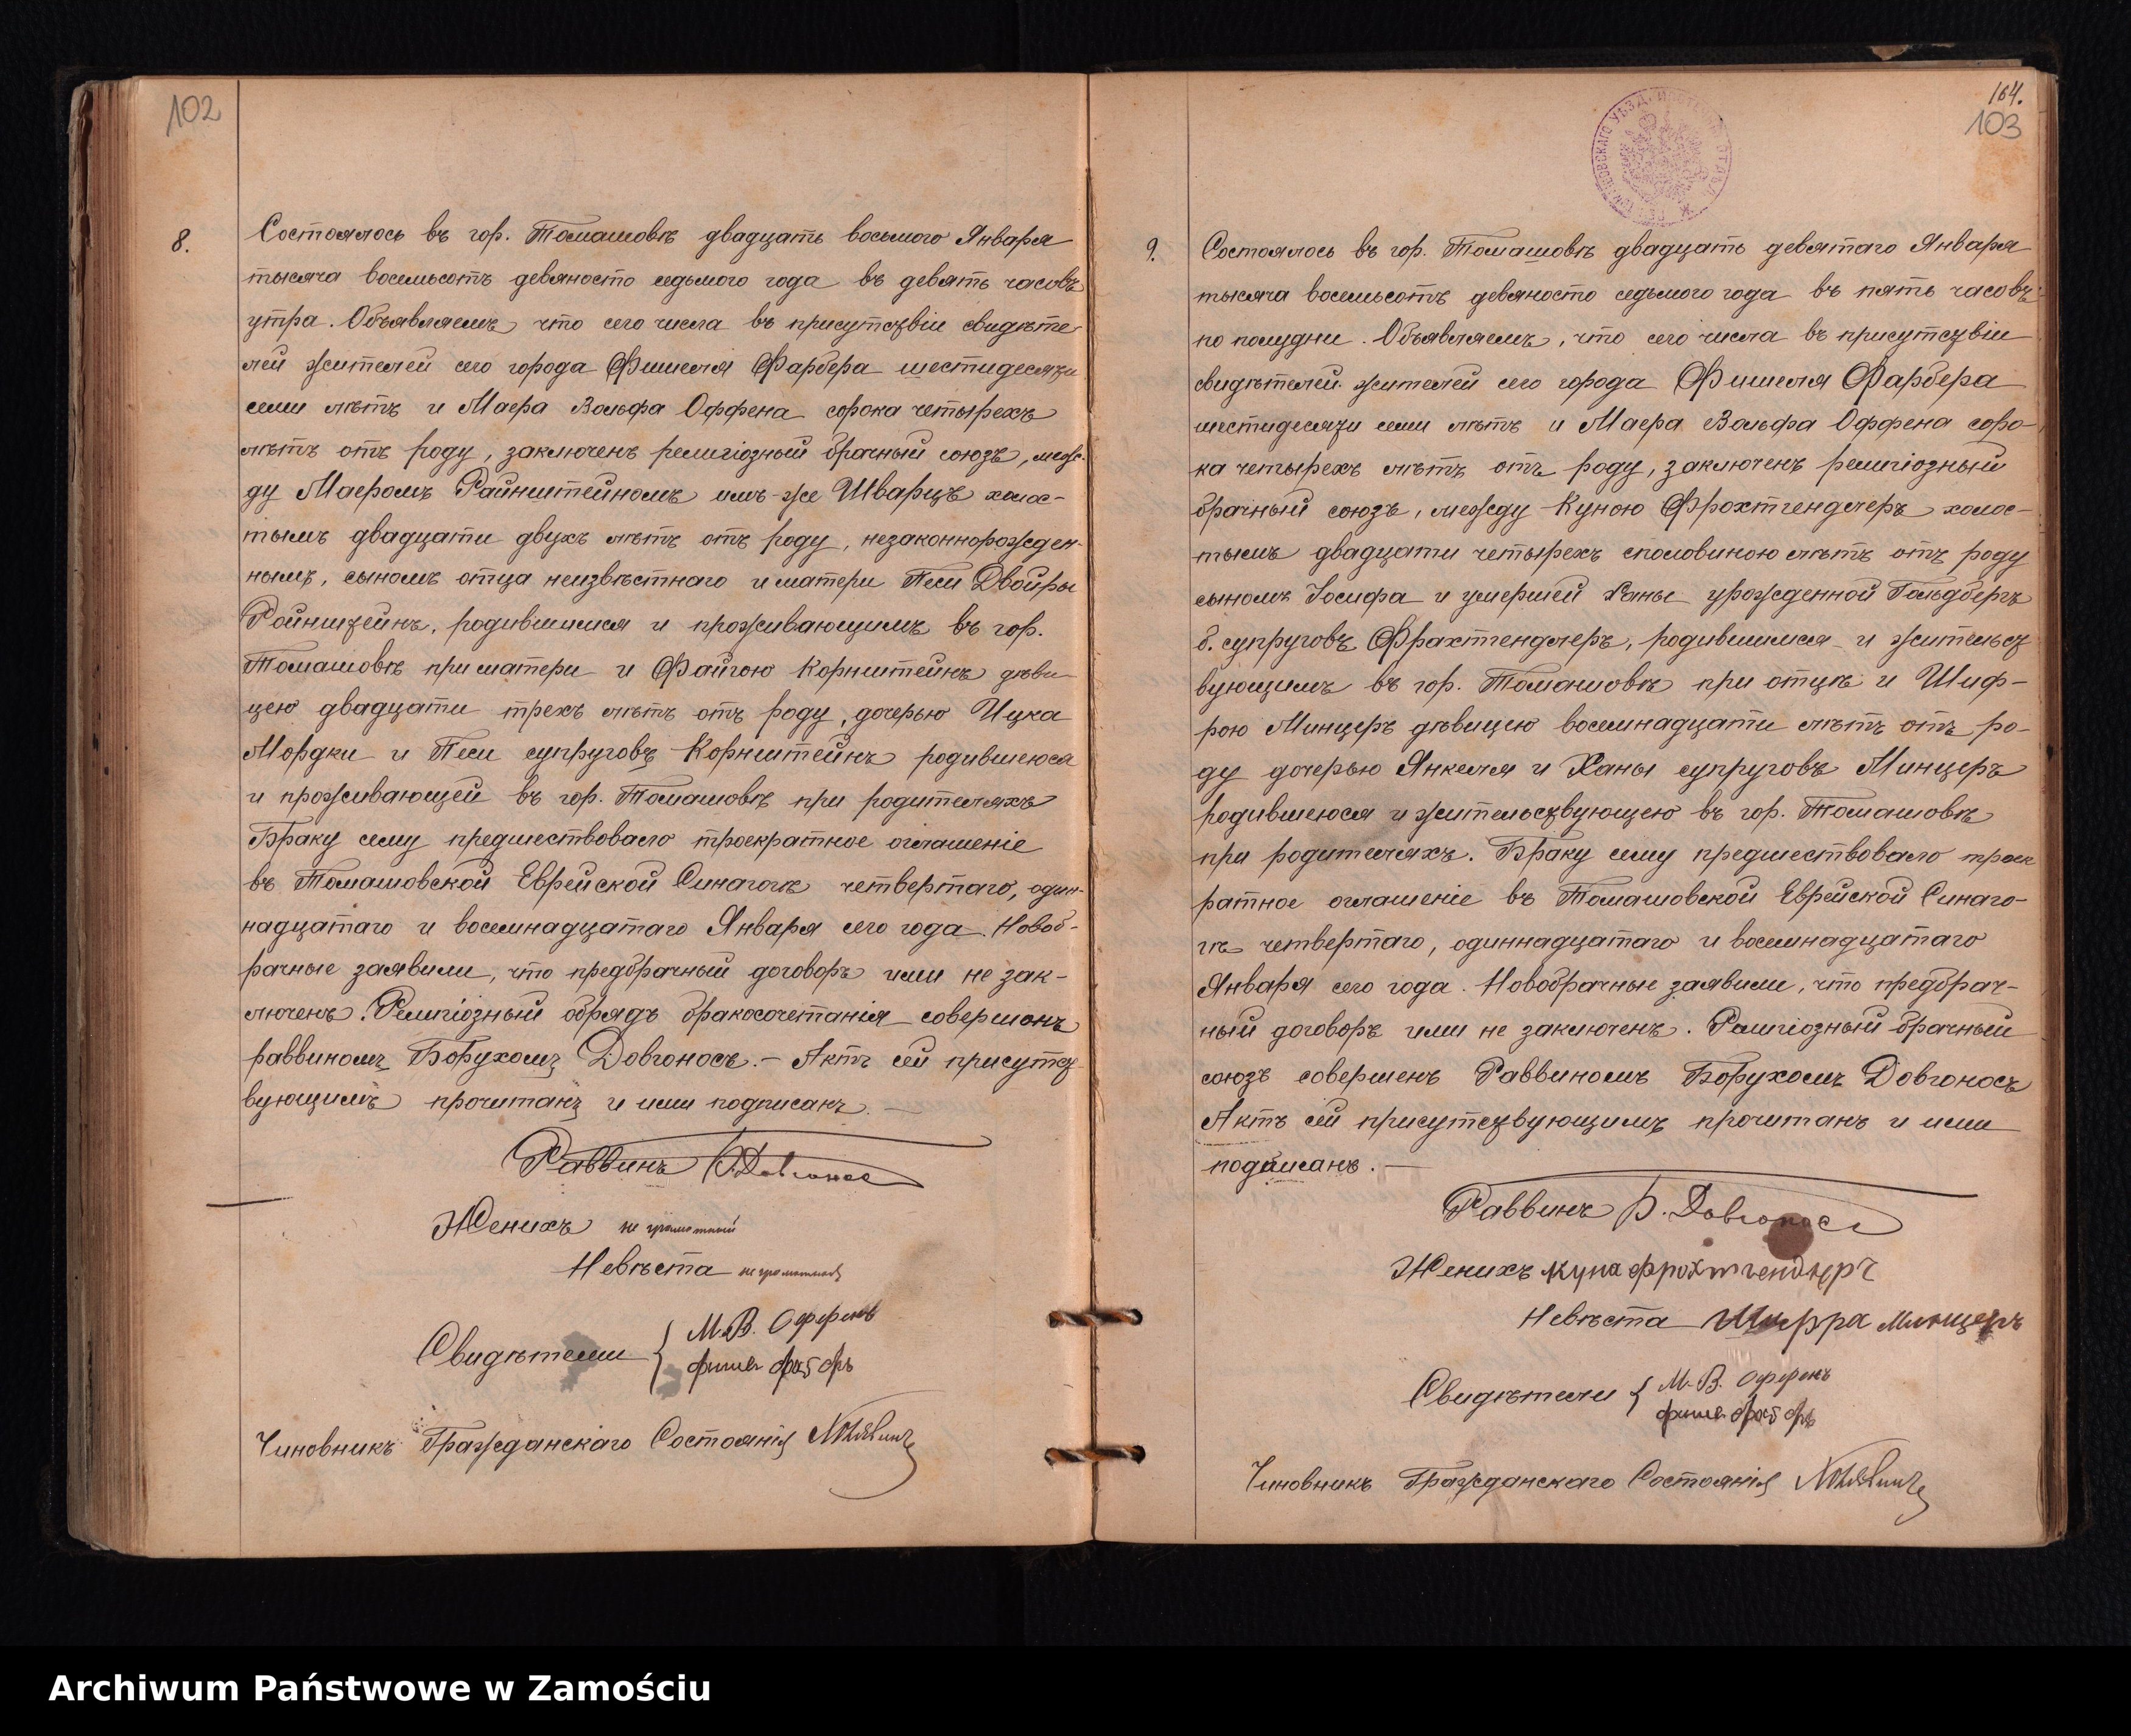 102
8.
Состоялось въ гор. Томашовѣ двадцать восьмого Января
тысяча восемьсотъ девяносто седьмого года въ девять часовъ
утра. Объявляемъ что сего числа въ присутствіи свидѣте-
лей жителей сего города Фишеля Фарбера шестидесяти
семи лѣтъ и Маера Вольфа Оффена сорока четырехъ
лѣтъ отъ роду, заключенъ религіозный брачный союзъ, меж-
ду Маеромъ Райнштейномъ имъ-же Шварцъ холос-
тымъ двадцати двухъ лѣтъ отъ роду, незаконнорожден-
нымъ, сыномъ отца неизвѣстнаго и матери Песи Двойры
Ройнштейнъ, родившимся и проживающимъ въ гор.
Томашовѣ при матери и Файгою Корнштейнъ дѣви-
цею двадцати трехъ лѣтъ отъ роду, дочерью Ицка
Мордки и Песи супруговъ Корнштейнъ родившеюся
и проживающей въ гор. Томашовѣ при родителяхъ
Браку сему предшествовало троекратное оглашеніе
въ Томашовской Еврейской Синагогѣ четвертаго, один-
надцатаго и восемнадцатаго Января сего года. Новоб-
рачные заявили, что предбрачный договоръ ими не зак-
люченъ. Религіозный обрядъ бракосочетанія совершонъ
раввиномъ Борухомъ Довгоносъ. — Актъ сей присутст-
вующимъ прочитанъ и ими подписанъ. —
Раввинъ Б. Довгонос
Женихъ не грамотный
Невѣста не грамотная
Свидѣтели { М. В. Оффенъ
фишел фарбръ
Чиновникъ Гражданскаго Состоянія
164.
103
9.
Состоялось въ гор. Томашовѣ двадцать девятаго Января
тысяча восемьсотъ девяносто седьмого года въ пять часовъ
по полудни. Объявляемъ, что сего числа въ присутствіи
свидѣтелей жителей сего города Фишеля Фарбера
шестидесяти семи лѣтъ и Маера Вольфа Оффена соро-
ка четырехъ лѣтъ отъ роду, заключенъ религіозный
брачный союзъ, между Куною Фрохтендлеръ холос-
тымъ двадцати четырехъ споловиною лѣтъ отъ роду
сыномъ Іосифа и умершей Ханы урожденной Гольдбергъ
б. супруговъ Фрахтендлеръ, родившимся и жительст
вующимъ въ гор. Томашовѣ при отцѣ и Шиф-
рою Минцеръ дѣвицею восемнадцати лѣтъ отъ ро-
ду дочерью Янкеля и Ханы супруговъ Минцеръ
родившеюся и жительствующею въ гор. Томашовѣ
при родителяхъ. Браку сему предшествовало троек
ратное оглашеніе въ Томашовской Еврейской Синаго-
гѣ четвертаго, одиннадцатаго и восемнадцатаго
Января сего года. Новобрачные заявили, что предбрач-
ный договоръ ими не заключенъ. Религіозный брачный
союзъ совершенъ Раввиномъ Борухомъ Довгоносъ
Актъ сей присутствующимъ прочитанъ и ими
подписанъ. —
Раввинъ Б. Довгонос
Женихъ Куна
Невѣста Шифра Минцеръ
Свидѣтели { М. В. Оффенъ
фишел фарбръ
Чиновникъ Гражданскаго Состоянія
Archiwum Państwowe w Zamościu